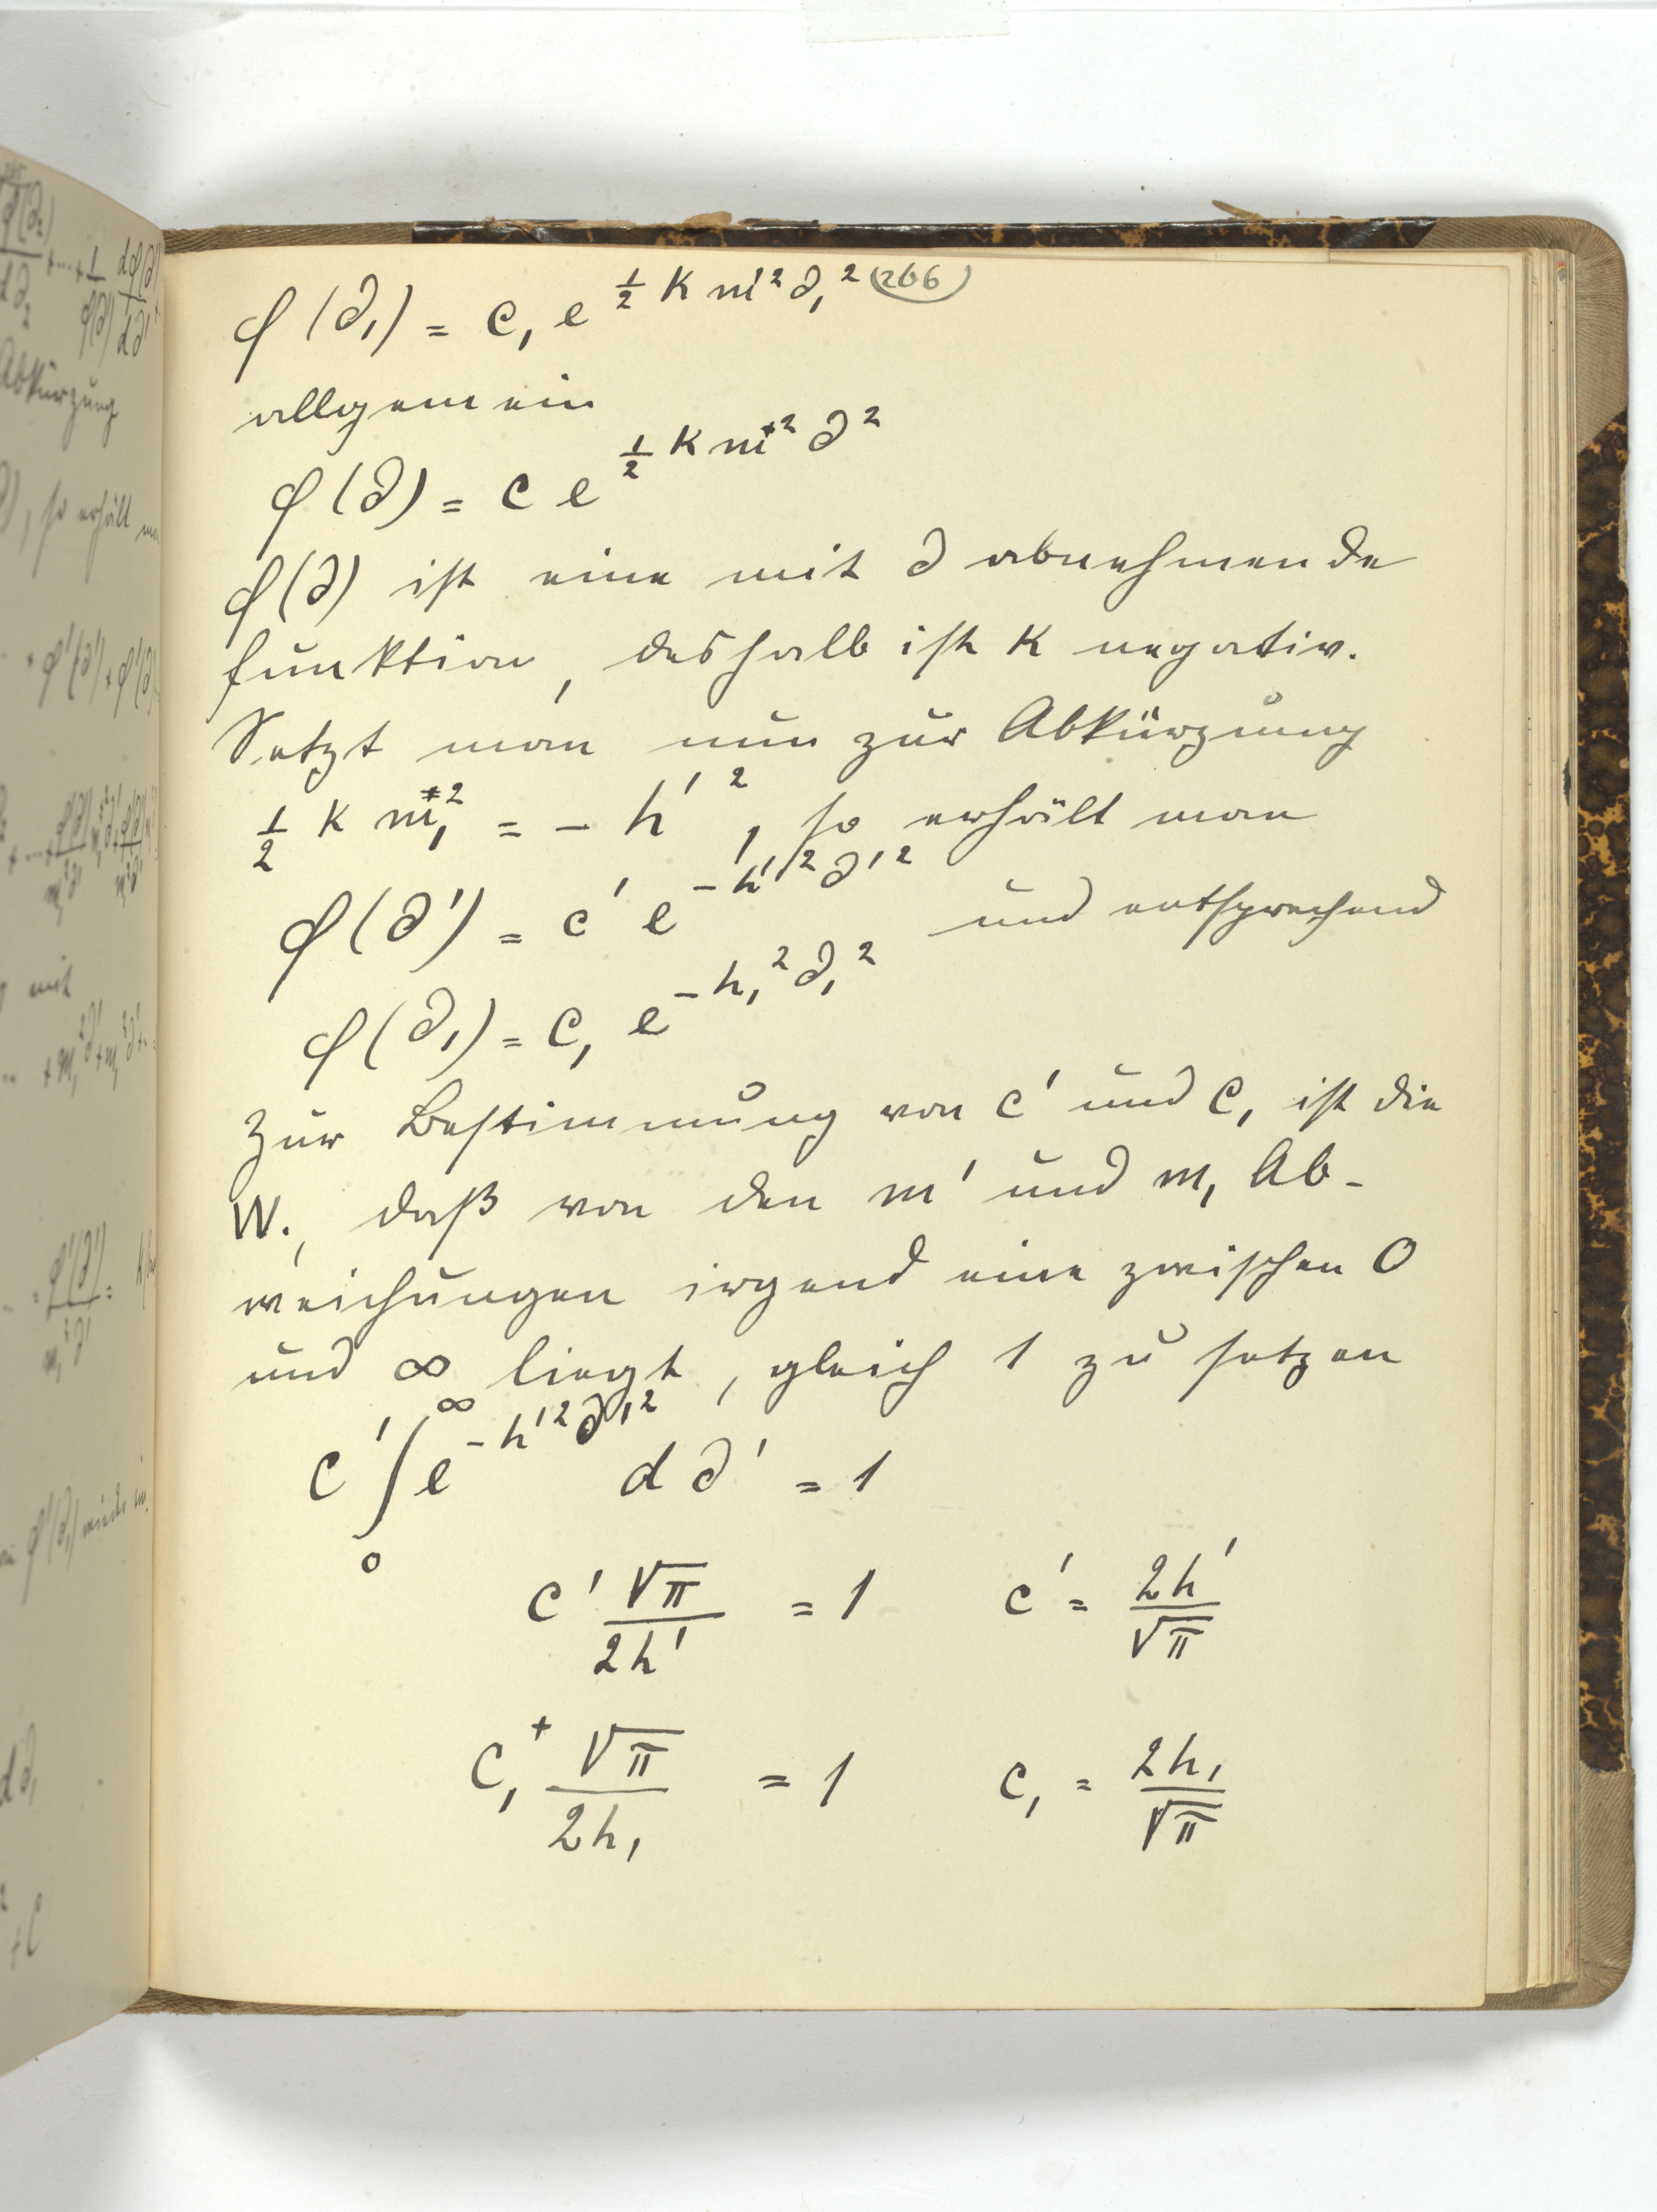 φ(∂₁) = c₁ e^{½ K m'² ∂₁²} (266)
allgemein
φ(∂) = c e^{½ K m*² ∂²}
φ(∂) ist eine mit ∂ abnehmende
Funktion, deshalb ist K negativ.
Setzt man nun zur Abkürzung
½ K m₁*² = - h'², so erhält man
φ(∂') = c' e^{-h'²∂'²} und entsprechend
φ(∂₁) = c₁ e^{-h₁²∂₁²}
Zur Bestimmung von c' und c₁ ist die
W., daß von den m' und m₁ Ab-
weichungen irgend eine zwischen 0
und ∞ liegt, gleich 1 zu setzen
c' ∫₀^∞ e^{-h'²∂'²} d∂' = 1
c' √π / 2h' = 1 c' = 2h' / √π
c₁⁺ √π / 2h₁ = 1 c₁ = 2h₁ / √π
Abkürzung
so erhält
mit